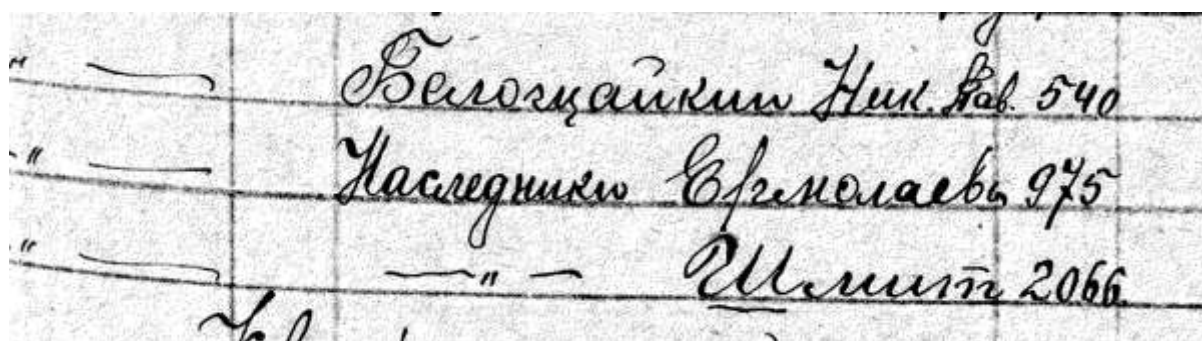 " — Белозцайкин Ник. Пав. 540
" — Наследники Ермолаева 975
" — — " — Шмит 2066.